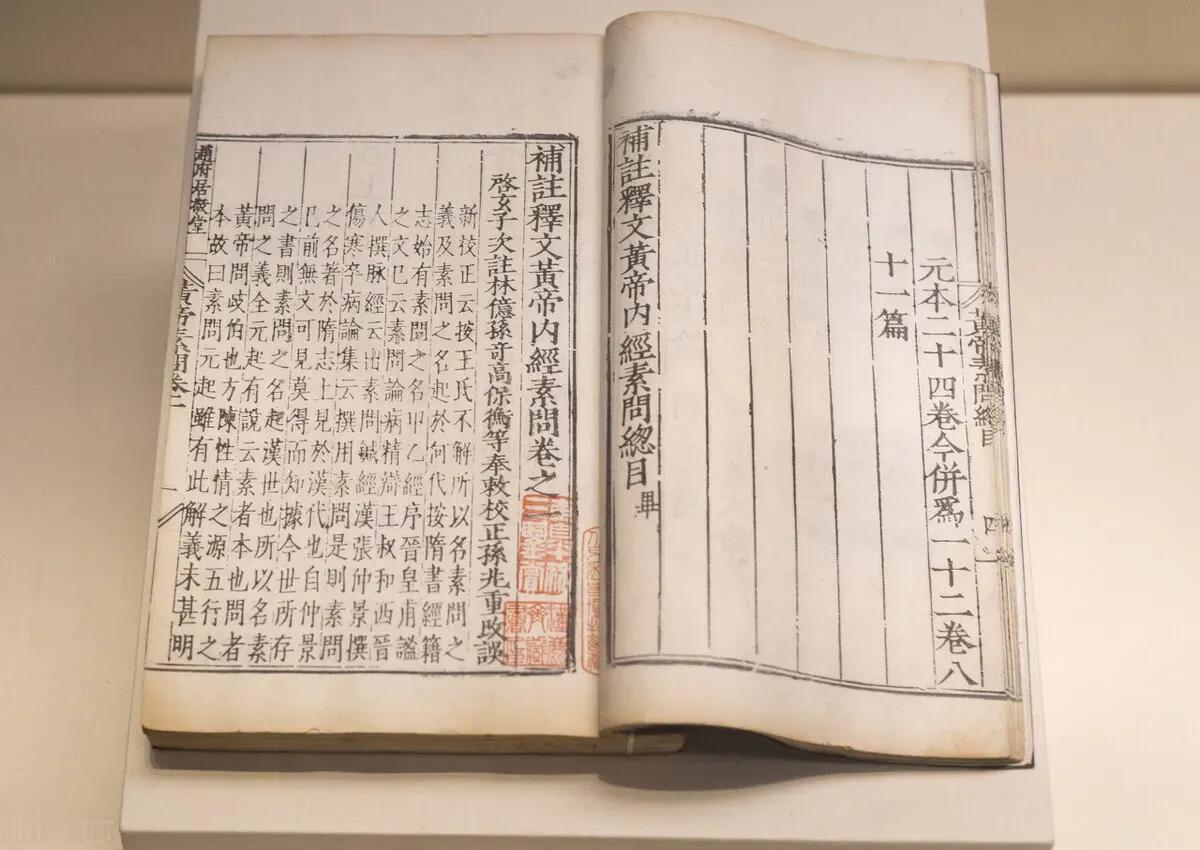 黃帝素問總目
四
元本二十四卷今併爲一十二卷八
十一篇
補註釋文黃帝內經素問總目畢
補註釋文黃帝內經素問卷之一
啓玄子次註林億孫奇高保衡等奉敕校正孫兆重改誤
新校正云按王氏不解所以名素問之
義及素問之名起於何代按隋書經籍
志始有素問之名甲乙經序晉皇甫謐
之文已云素問論病精辯王叔和西晉
人撰脉經云出素問鍼經漢張仲景撰
傷寒卒病論集云撰用素問是則素問
之名著於隋志上見於漢代也自仲景
已前無文可見莫得而知據今世所存
之書則素問之名起漢世也所以名素
問之義全元起有說云素者本也問者
黃帝問歧伯也方陳性情之源五行之
本故曰素問元起雖有此解義未甚明
趙府居敬堂
黃帝素問卷一